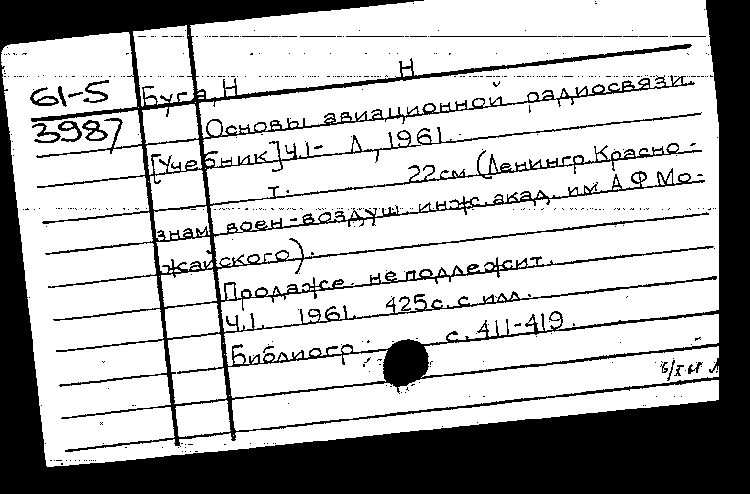 61-5 Буга, Н Н
3987 Основы авиационной радиосвязи.
[Учебник] Ч.1- Л., 1961.
т. 22 см (Ленингр. Красно-
знам. воен-воздуш. инж. акад. им А Ф Мо-
жайского).
Продаже не подлежит.
Ч.1. 1961. 425 с. с илл.
Библиогр: с. 411-419.